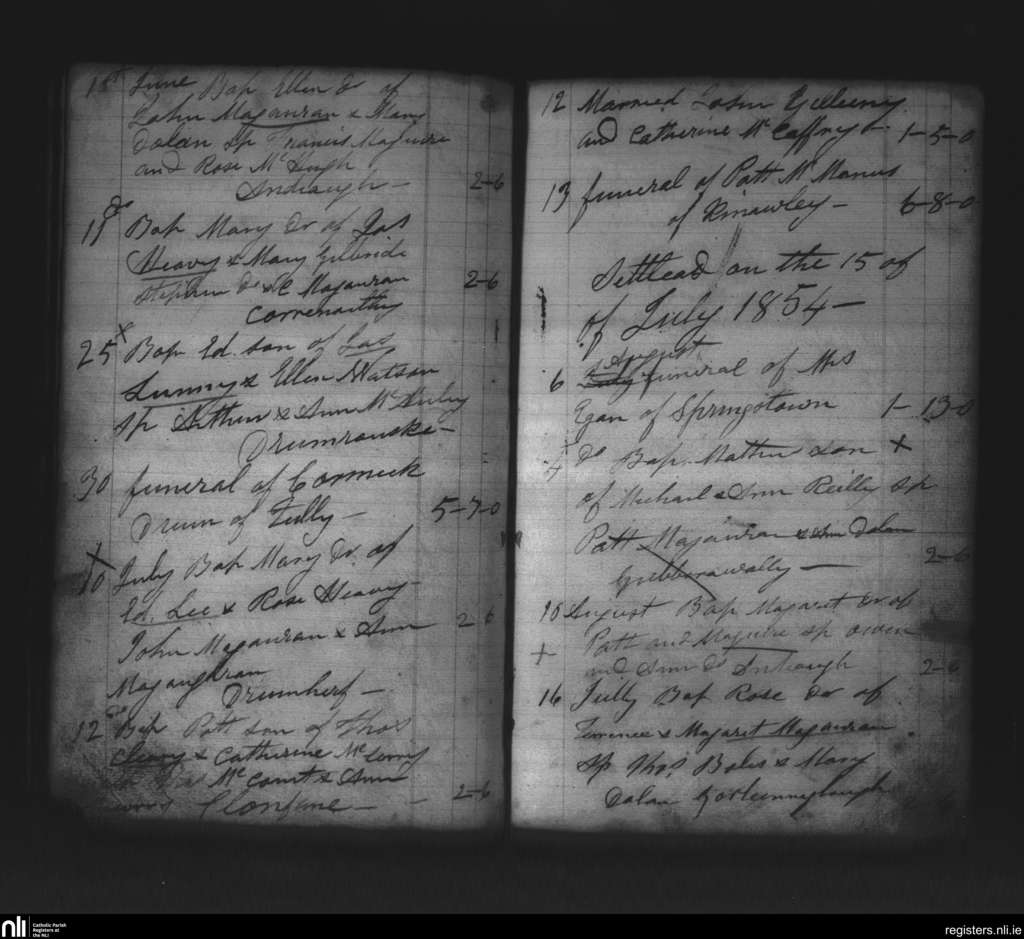 18th June Bap Ellen Dr of
John Magauran & Mary
Dolan Sp Francis Maguire
and Rose McHugh
2-6
18 do Bap Mary Dr of Jas
Heavy & Mary Gilbride
Stephen do & C Magauran
2-6
25 Bap Ed. son of Jas
Lunny & Ellen Watson
Sp Arthur & Ann McAuley
30 funeral of Cormick
Drum of Tully - 5-7-0
10 July Bap Mary Dr. of
Ed. Lee & Rose Heavy
John Magauran & Ann 2 6
Magaughran
Drumherf -
12 do Bap Patt son of Thos
Cleary & Catherine Mc
McCourt & Ann
2-6
12 Married John
and Catherine McCaffrey - 1-5-0
13 funeral of Patt McManus
of Kinawley - 6-8-0
Settlead on the 15 of
of July 1854 -
August
6 July funeral of Mrs
Egan of Springtown 1-13-0
4 do Bap. Mathew son X
of Michael & Ann Reilly Sp
Patt Magauran & Ann Dolan
2-6
10 August Bap Magaret Dr of
X Patt and Maguire Sp Owen
and Ann do 2-6
16 Jully Bap Rose Dr of
Terrence & Magaret Magauran
Sp Thos. & Mary
Dolan
nli
Catholic Parish
Registers at
the NLI
registers.nli.ie